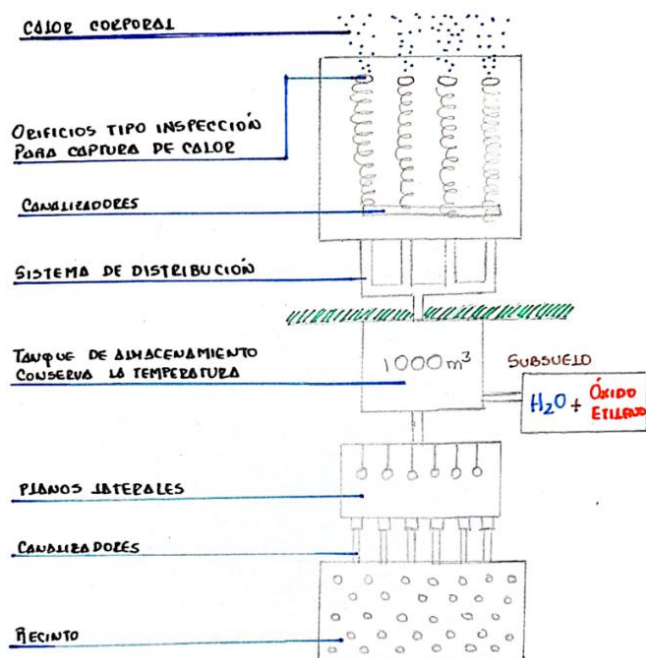 CALOR CORPORAL
ORIFICIOS TIPO INSPECCIÓN
PARA CAPTURA DE CALOR
CANALIZADORES
SISTEMA DE DISTRIBUCIÓN
TANQUE DE ALMACENAMIENTO
CONSERVA LA TEMPERATURA
1000 m³
SUBSUELO
H₂O + ÓXIDO
ETILENO
PLANOS LATERALES
CANALIZADORES
RECINTO